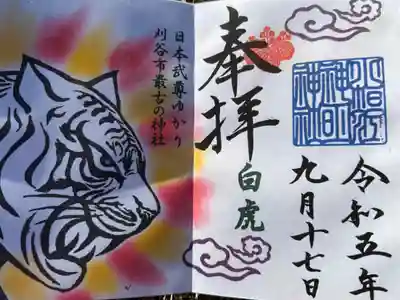 奉拝
白虎
小垣江
神明
神社
令和五年
九月十七日
日本武尊ゆかり
刈谷市最古の神社